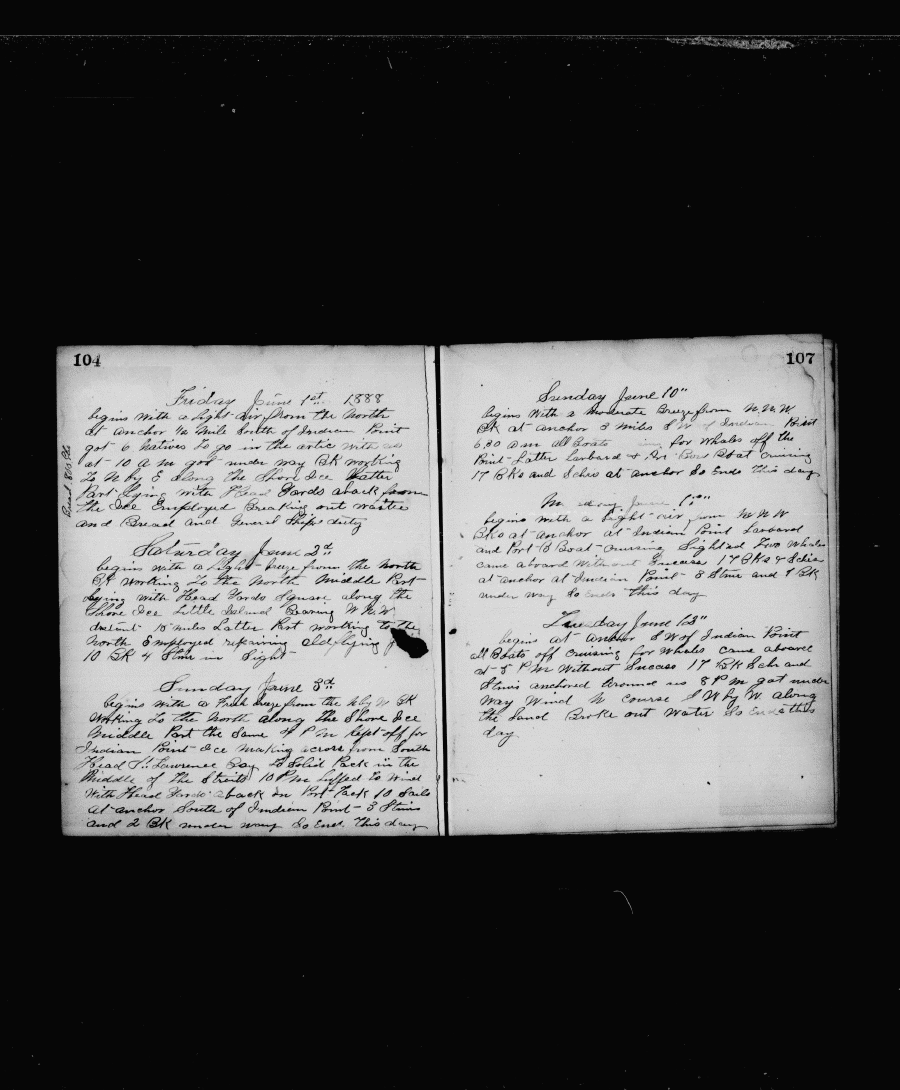 104
Friday June 1st 1888
begins with a light air from the North
at anchor 1/2 Mile South of Indian Point
got 6 Natives to go in the artic with us
at 10 a m got under way BK working
To N by E along the Shore Ice Latter
Part lying with Head Yards aback from
the Ice Employed Breaking out wasties
and Bread and General Ships duty
Bread 810 lbs
Saturday June 2d
begins with a light breeze from the North
BK Working To the North Middle Part
lying with Head Yards Square along the
Shore Ice Little Island Bearing W N W
distant 15 miles Latter Part working to the
North Employed repairing old flying
10 BK 4 Stmr in Sight
Sunday June 3d
begins with a Fresh breeze from the N by W BK
Working To the North along the Shore Ice
Middle Part the Same 4 P M Kept off for
Indian Point Ice making across from South
Head St Lawrence Bay To Solid Pack in the
Middle of the Straits 10 P M Luffed to Wind
With Head Yards aback on Port Tack 10 Sails
at anchor South of Indian Point 3 Stmrs
and 2 BK under way So Ends This day
107
Sunday June 10"
begins With a moderate Breeze from N N W
BK at anchor 3 miles S W of Indian Point
6,30 a m all Boats for Whales off the
Point Latter Larbard & Boat Cruising
17 BKs and Schrs at anchor So Ends This day
June
begins with a light air from N N W
BKs at anchor at Indian Point Larboard
and Port B Boat Cruising Sighted Two Whales
came aboard Without Success 17 BKs & Schrs
at anchor at Indian Point 3 Stmr and 1 BK
under way So Ends This day
Tuesday June
begins at anchor S W of Indian Point
all Boats off cruising for Whales came aboard
at 5 P M Without Sucsess 17 BK Schr and
Stmrs anchored Around us 8 P M got under
way Wind N course S W by W along
the Land Broke out Water So Ends this
day